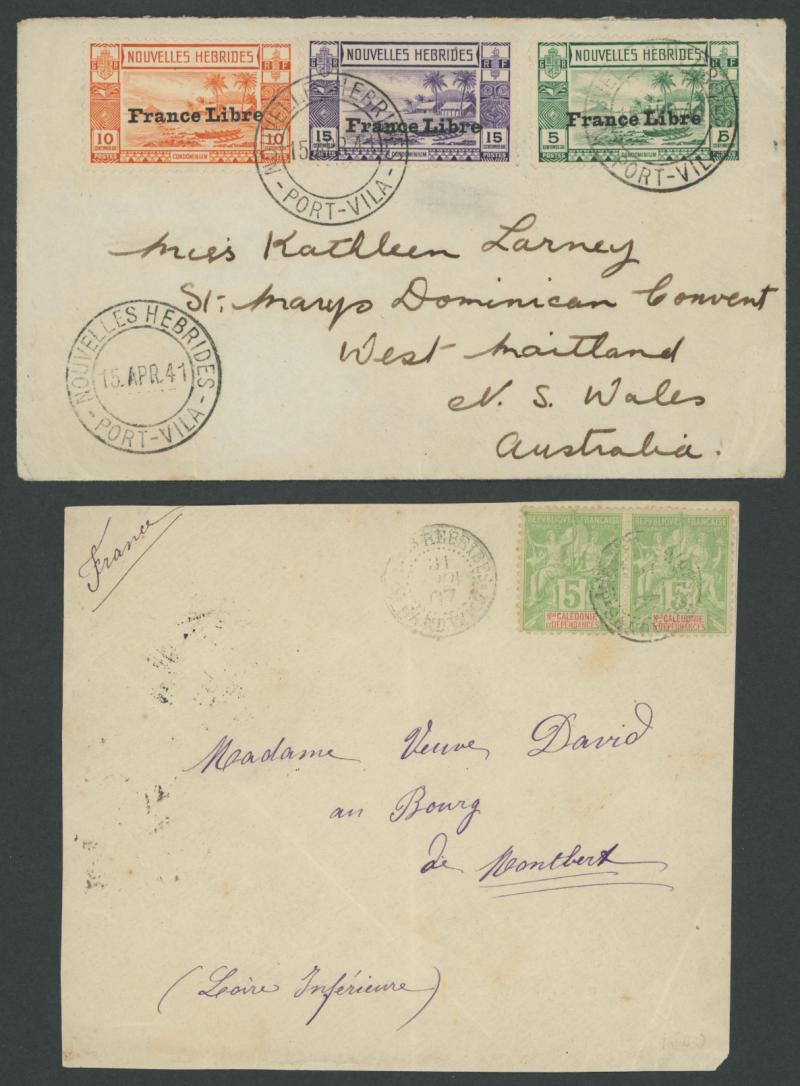 NOUVELLES HEBRIDES
G R
R F
France Libre
10
10
CENTIMES OR
POSTES
CONDOMINIUM
NOUVELLES HEBRIDES
R F
France Libre
15
15
CENTIMES OR
POSTES
CONDOMINIUM
NOUVELLES HEBRIDES
G R
R F
France Libre
5
5
CENTIMES OR
POSTES
CONDOMINIUM
NOUVELLES HEBRIDES
- PORT-VILA -
PORT-VILA
Miss Kathleen Larney
St. Marys Dominican Convent
West Maitland
N. S. Wales
Australia.
NOUVELLES HEBRIDES
15. APR. 41
- PORT-VILA -
France
HEBRIDES
31
07
REPUBLIQUE FRANÇAISE
5
Nlle CALÉDONIE
ET DÉPENDANCES
REPUBLIQUE FRANÇAISE
5
Nlle CALÉDONIE
ET DÉPENDANCES
Madame Veuve David
au Bourg
de Montbert
(Loire Inférieure)